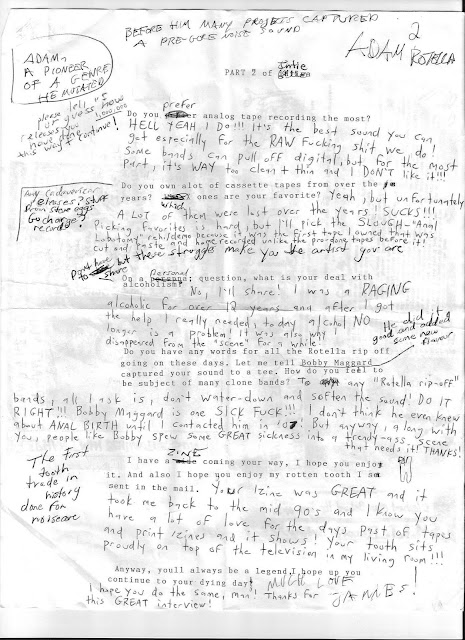 BEFORE HIM MANY PROJECTS CAPTURED
A PRE-GORE NOISE SOUND
2
ADAM ROTELLA
ADAM,
A PIONEER
OF A GENRE
HE MUTATED
PART 2 of
please tell us
or guess how
releases you
have the 1,000,000
this won't continue!
prefer
Do you analog tape recording the most?
HELL YEAH I DO!!! It's the best sound you can
get especially for the RAW fucking shit we do!
Some bands can pull off digital, but for the most
part, it's WAY too clean + thin and I DON'T like it!!!
Any Cadaverizer
releases? Stuff
from Steve
Gocharge
records?
Do you own alot of cassette tapes from over the
years? Which ones are your favorite? Yeah, but unfortunately
A LOT of them were lost over the years! SUCKS!!!
Picking favorites is hard, but I'll pick the SLOUGH "Anal
Lobotomy" tape/demo because it was the first tape I owned that was
cut and paste and home recorded unlike the pro-done tapes before it!
Don't have to share, but these struggles make you the artist you are
On a personal question, what is your deal with
alcoholism? No, I'll share! I was a RAGING
alcoholic for over 12 years and after I got
the help I really needed, today alcohol NO
longer is a problem! It was also why I
disappeared from the "scene" for a while!!
He did it
good and added
some new
flavour
Do you have any words for all the Rotella rip off
going on these days. Let me tell Bobby Maggard
captured your sound to a tee. How do you feel to
be subject of many clone bands? To any "Rotella rip-off"
bands, all I ask is, don't water-down and soften the sound! DO IT
RIGHT!!! Bobby Maggard is one SICK FUCK!!! I don't think he even knew
about ANAL BIRTH until I contacted him in '07! But anyway, along with
you, people like Bobby spew some GREAT sickness into a trendy-ass scene
that needs it! THANKS!
The first
tooth
trade in
history
done for
noisecore
ZINE
I have a coming your way, I hope you enjoy
it. And also I hope you enjoy my rotten tooth I
sent in the mail. Your 'zine was GREAT and it
took me back to the mid 90's and I know you
have a lot of love for the days past of tapes
and print 'zines and it shows! Your tooth sits
proudly on top of the television in my living room!!!
Anyway, youll always be a legend,I hope up you
continue to your dying day! MUCH LOVE
I hope you do the same, man! Thanks for JAMES!
this GREAT interview!